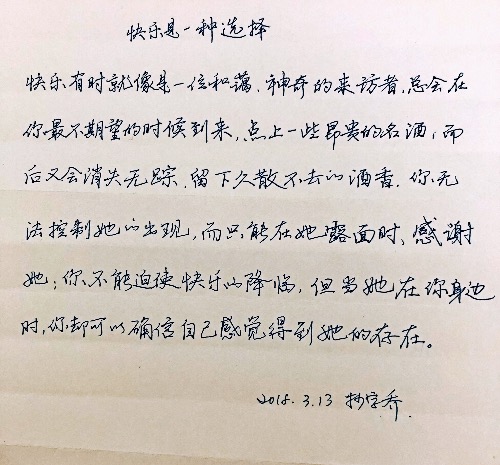 快乐是一种选择
快乐有时就像是一位和蔼、神奇的来访者,总会在
你最不期望的时候到来,点上一些昂贵的名酒,而
后又会消失无踪,留下久散不去的酒香。你无
法控制她的出现,而只能在她露面时、感谢
她;你不能迫使快乐的降临,但当她在你身边
时,你却可以确信自己感觉得到她的存在。
2018.3.13 抄字乔